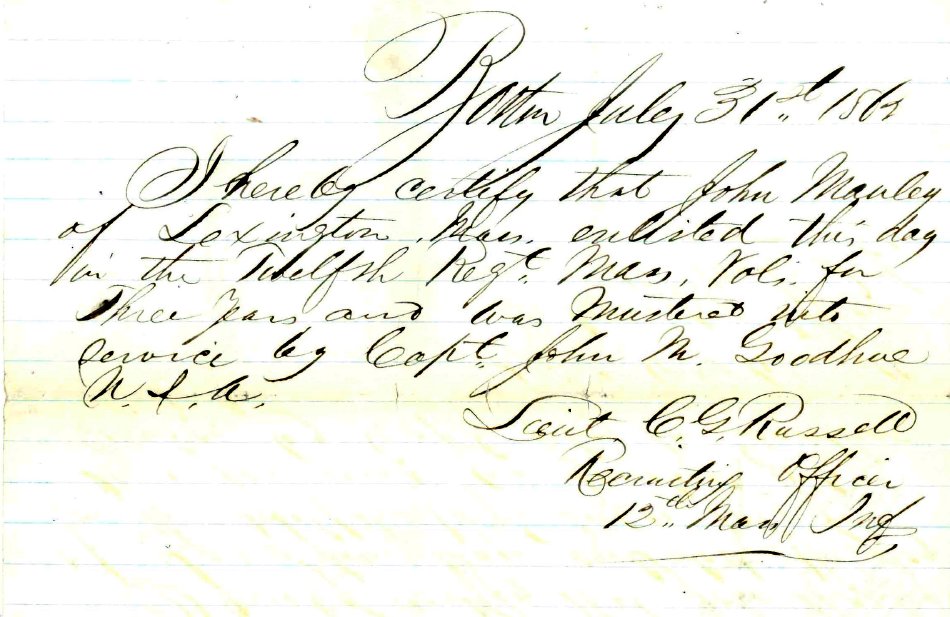 Boston July 31st 1862
I hereby certify that John Manley
of Lexington, Mass. enlisted this day
in the Twelfth Regt. Mass. Vols. for
Three years and was Mustered into
service by Capt. John M. Goodhue
U.S.A.
Lieut C. G. Russell
Recruiting Officer
12th Mass Inf.